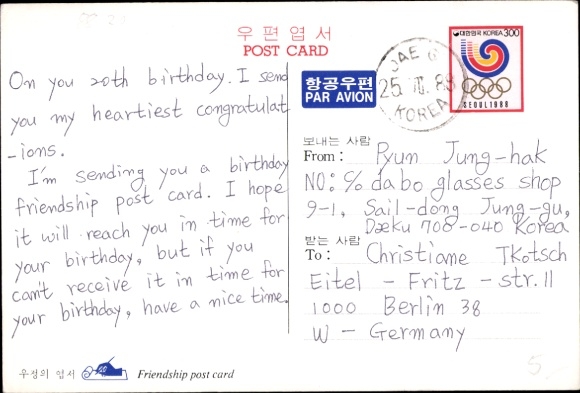 우편엽서
POST CARD
대한민국 KOREA 300
SEOUL 1988
항공우편
PAR AVION
KOREA
On you 20th birthday. I send
you my heartiest congratulat
-ions.
I'm sending you a birthday
friendship post card. I hope
it will reach you in time for
your birthday, but if you
can't receive it in time for
your birthday, have a nice time.
보내는 사람
From: Pyun Jung-hak
NO: c/o dabo glasses shop
9-1, Sail-dong Jung-gu,
Dæku 700-040 Korea
받는 사람
To: Christiane TKotsch
Eitel - Fritz - str. 11
1000 Berlin 38
W - Germany
우정의 엽서
Friendship post card
5